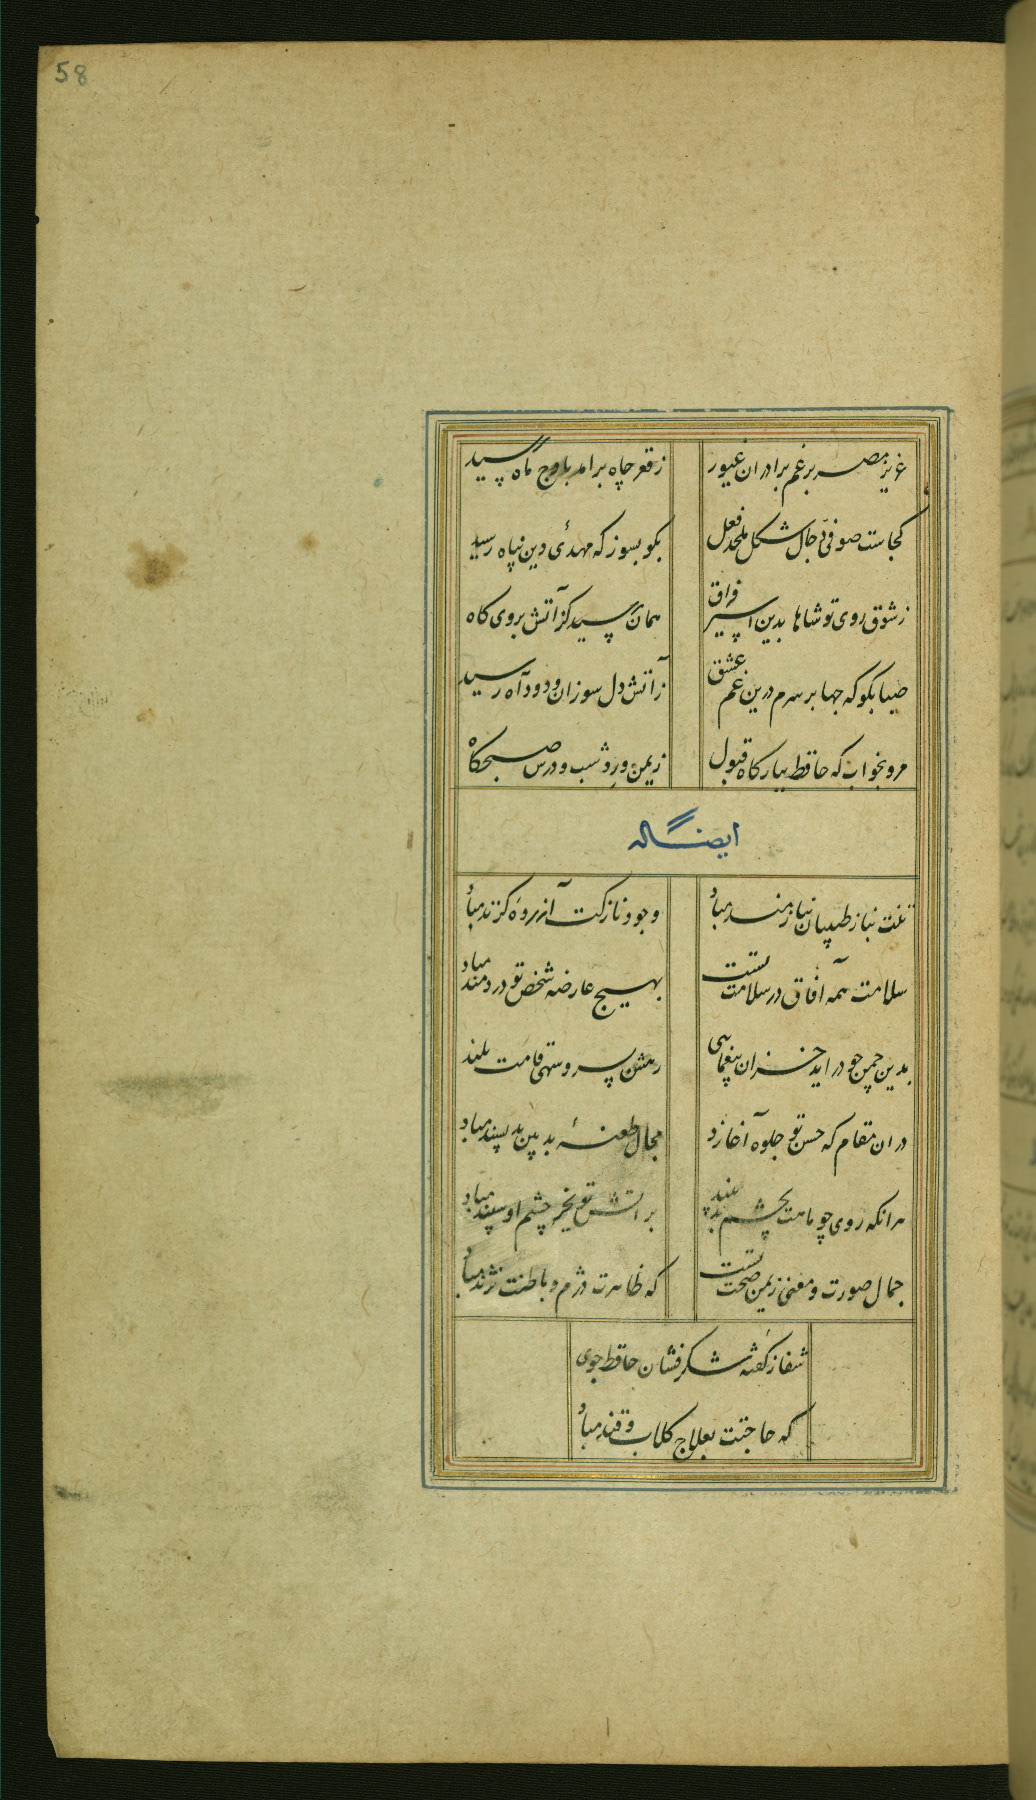 58
عزیز مصر برغم برادران غیور
ز قعر چاه برامد باوج ماه رسید
کجاست صوفی دجال شکل ملحد فعل
بکو بسوز که مهدئ دین پناه رسید
ز شوق روی تو شاها بدین اسیر فراق
همان رسید کز آتش بروی کاه
صبا بکو که چها بر سرم درین غم عشق
ز آتش دل سوزان و دود آه رسید
مرو بخواب که حافظ ببارکاه قبول
ز یمن ورد شب و درس صبحکاه
ایضا له
تنت بناز طبیبان نیازمند مباد
وجود نازکت آزرده کزند مباد
سلامت همه آفاق در سلامت تست
بهیچ عارضه شخص تو دردمند مباد
بدین چمن چو در اید خزان یغمایی
رهش بسرو سهی قامت بلند
دران مقام که حسن تو جلوه آغازد
مجال طعنهٔ بدبین بدپسند مباد
هرانکه روی چو ماهت بچشم بد بیند
بر اتش تو بجز چشم او سپند مباد
جمال صورت و معنی ز یمن صحت تست
که ظاهرت دژم و باطنت نژند مباد
شفا ز کفته شکرفشان حافظ جوی
که حاجتت بعلاج کلاب و قند مباد